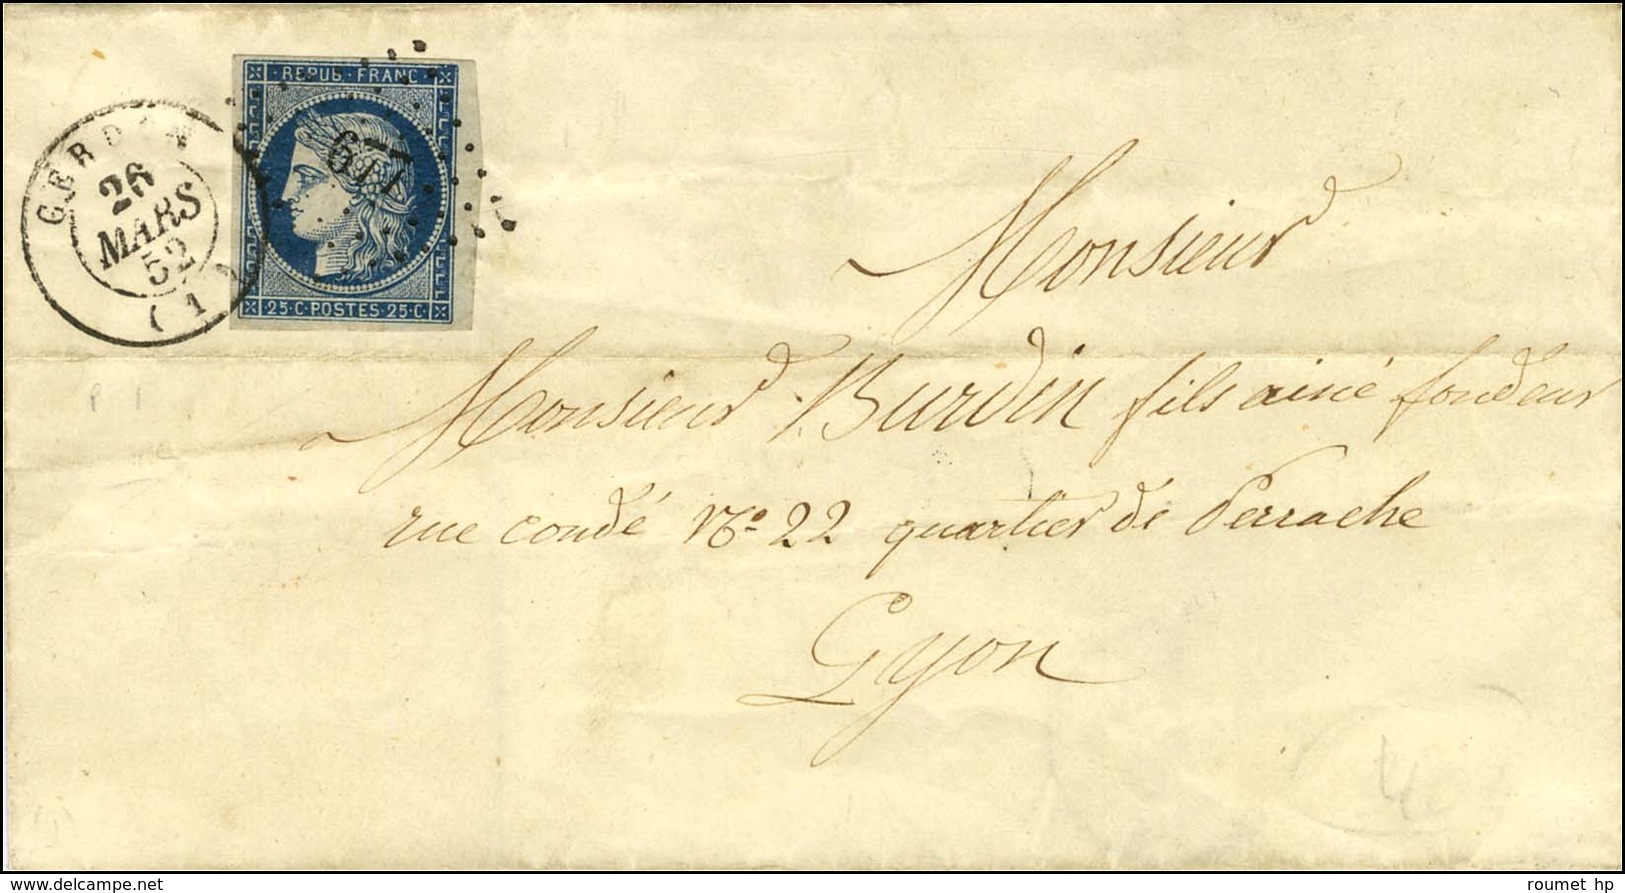 CERDON
26
MARS
52
( 1 )
REPUB · FRANC
677
25 · C · POSTES · 25 · C ·
Monsieur
Monsieur Burdin fils ainé fondeur
rue condé No. 22 quartier de Perrache
Lyon
www.delcampe.net
roumet hp